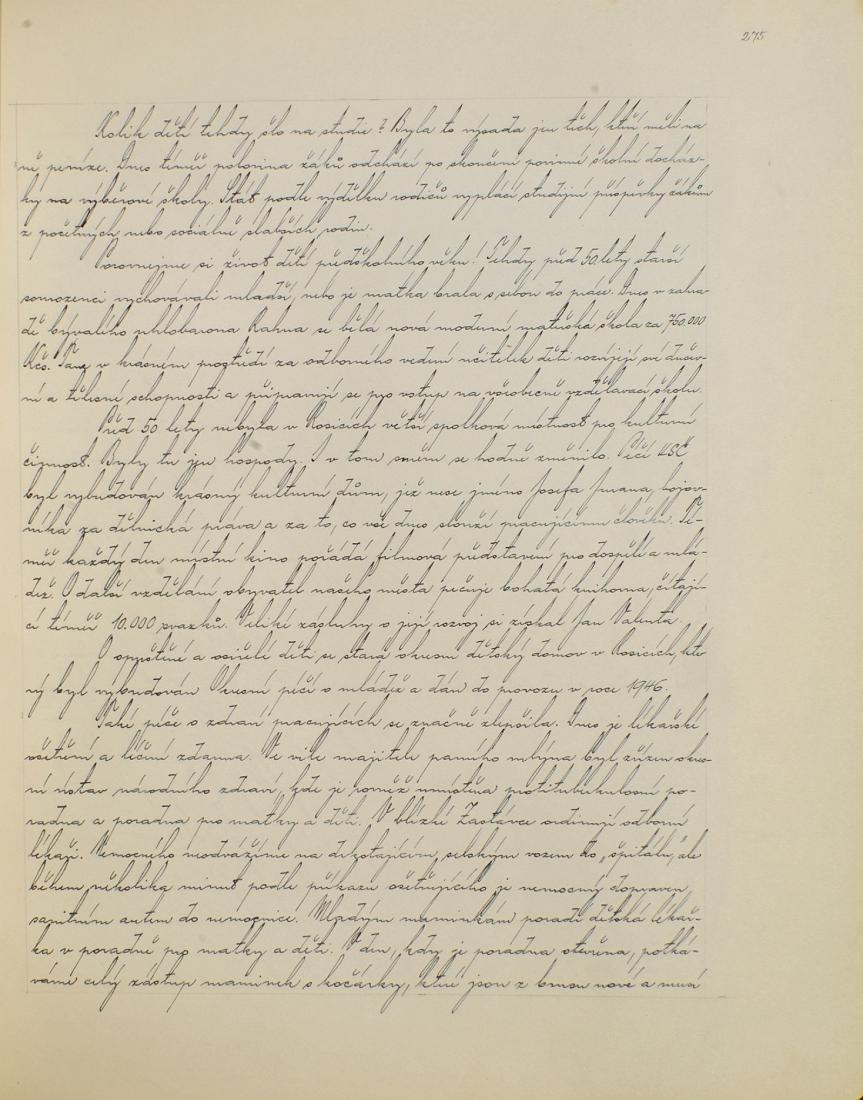 275
Kolik dětí tehdy šlo na studie? Byla to výsada jen těch, kteří měli na
ně peníze. Dnes téměř polovina žáků odchází po skončení povinné školní docház-
ky na výběrové školy. Stát podle výdělku rodičů vyplácí studijní příspěvky žákům
z početných nebo sociálně slabších rodin.
Porovnejme si život dětí předškolního věku! Tehdy před 50 lety starší
sourozenci vychovávali mladší, nebo je matka brala s sebou do práce. Dnes v zahra-
dě bývalého uhlobarona Rahna se bělá nová moderní mateřská škola za 750.000
Kčs. Tam v krásném prostředí za odborného vedení učitelek děti rozvíjejí své dušev-
ní a tělesné schopnosti a připravují se pro vstup na všeobecně vzdělávací školu.
Před 50 lety nebyla v Rosicích větší spolková místnost pro kulturní
činnost. Byly tu jen hospody. I v tom směru se hodně změnilo. Péčí KSČ
byl vybudován krásný kulturní dům, jež nese jméno Josefa Jurana, bojov-
níka za dělnická práva a za to, co vše dnes slouží pracujícímu člověku. Té-
měř každý den místní kino pořádá filmová představení pro dospělé a mlá-
dež. O další vzdělání obyvatel našeho města pečuje bohatá knihovna, čítají-
cí téměř 10.000 svazků. Veliké zásluhy o její rozvoj si získal Jan Valenta.
O opuštěné a osiřelé děti se stará okresní dětský domov v Rosicích, kte
rý byl vybudován Okresní péčí o mládež a dán do provozu v roce 1946.
Také péče o zdraví pracujících se značně zlepšila. Dnes je lékařské
ošetření a léčení zdarma. Ve vile majitele parního mlýna byl zřízen okres-
ní ústav národního zdraví, kde je rovněž umístěna protituberkulosní po-
radna a poradna pro matky a děti. V blízké Zastávce ordinují odborní
lékaři. Nemocného neodvážíme na drkotajícím, selským vozem do „špitálu", ale
během několika minut podle příkazu ošetřujícího je nemocný dopraven
sanitním autem do nemocnice. Mladým maminkám poradí dětská lékař-
ka v poradně pro matky a děti. V den, kdy je poradna otevřena, potká-
váme celý zástup maminek s kočárky, které jsou z brusu nové a musí